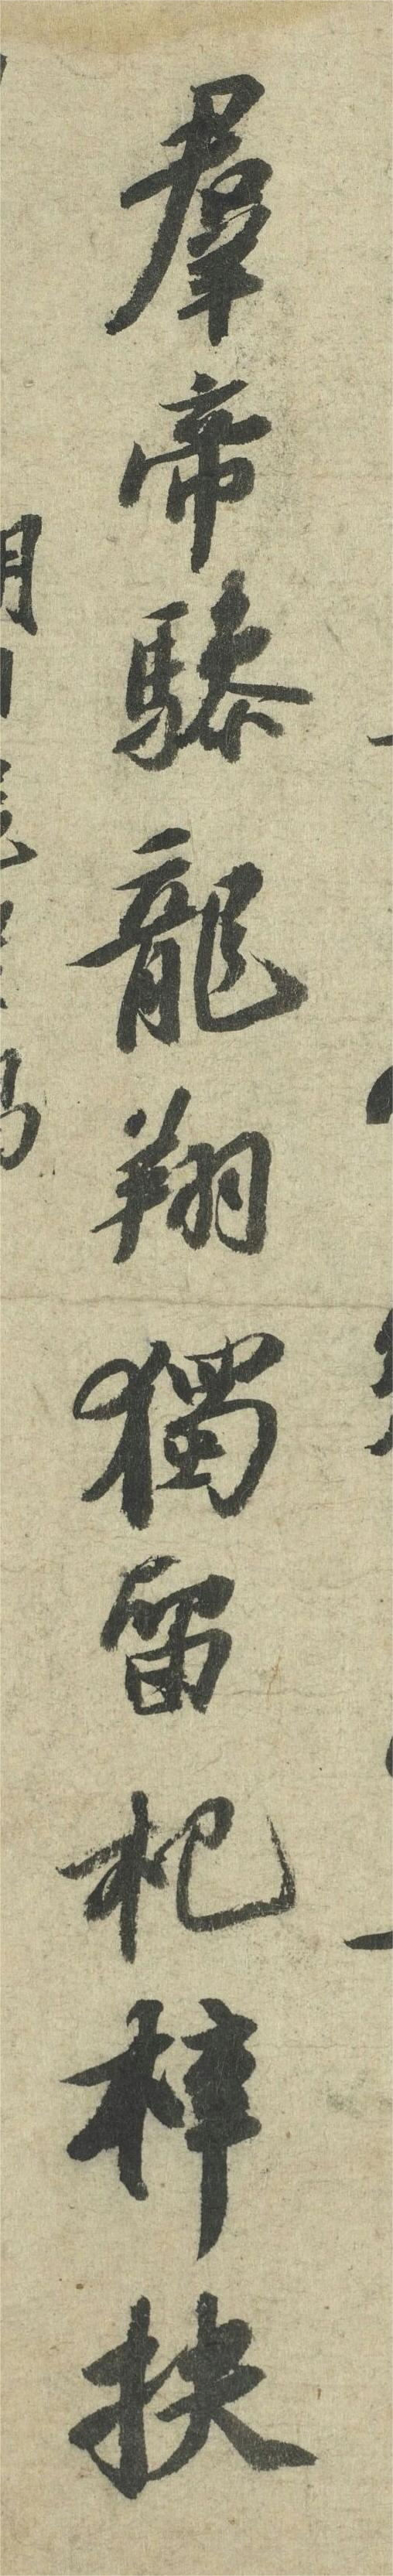 羣帝驂龍翔獨留杞梓扶